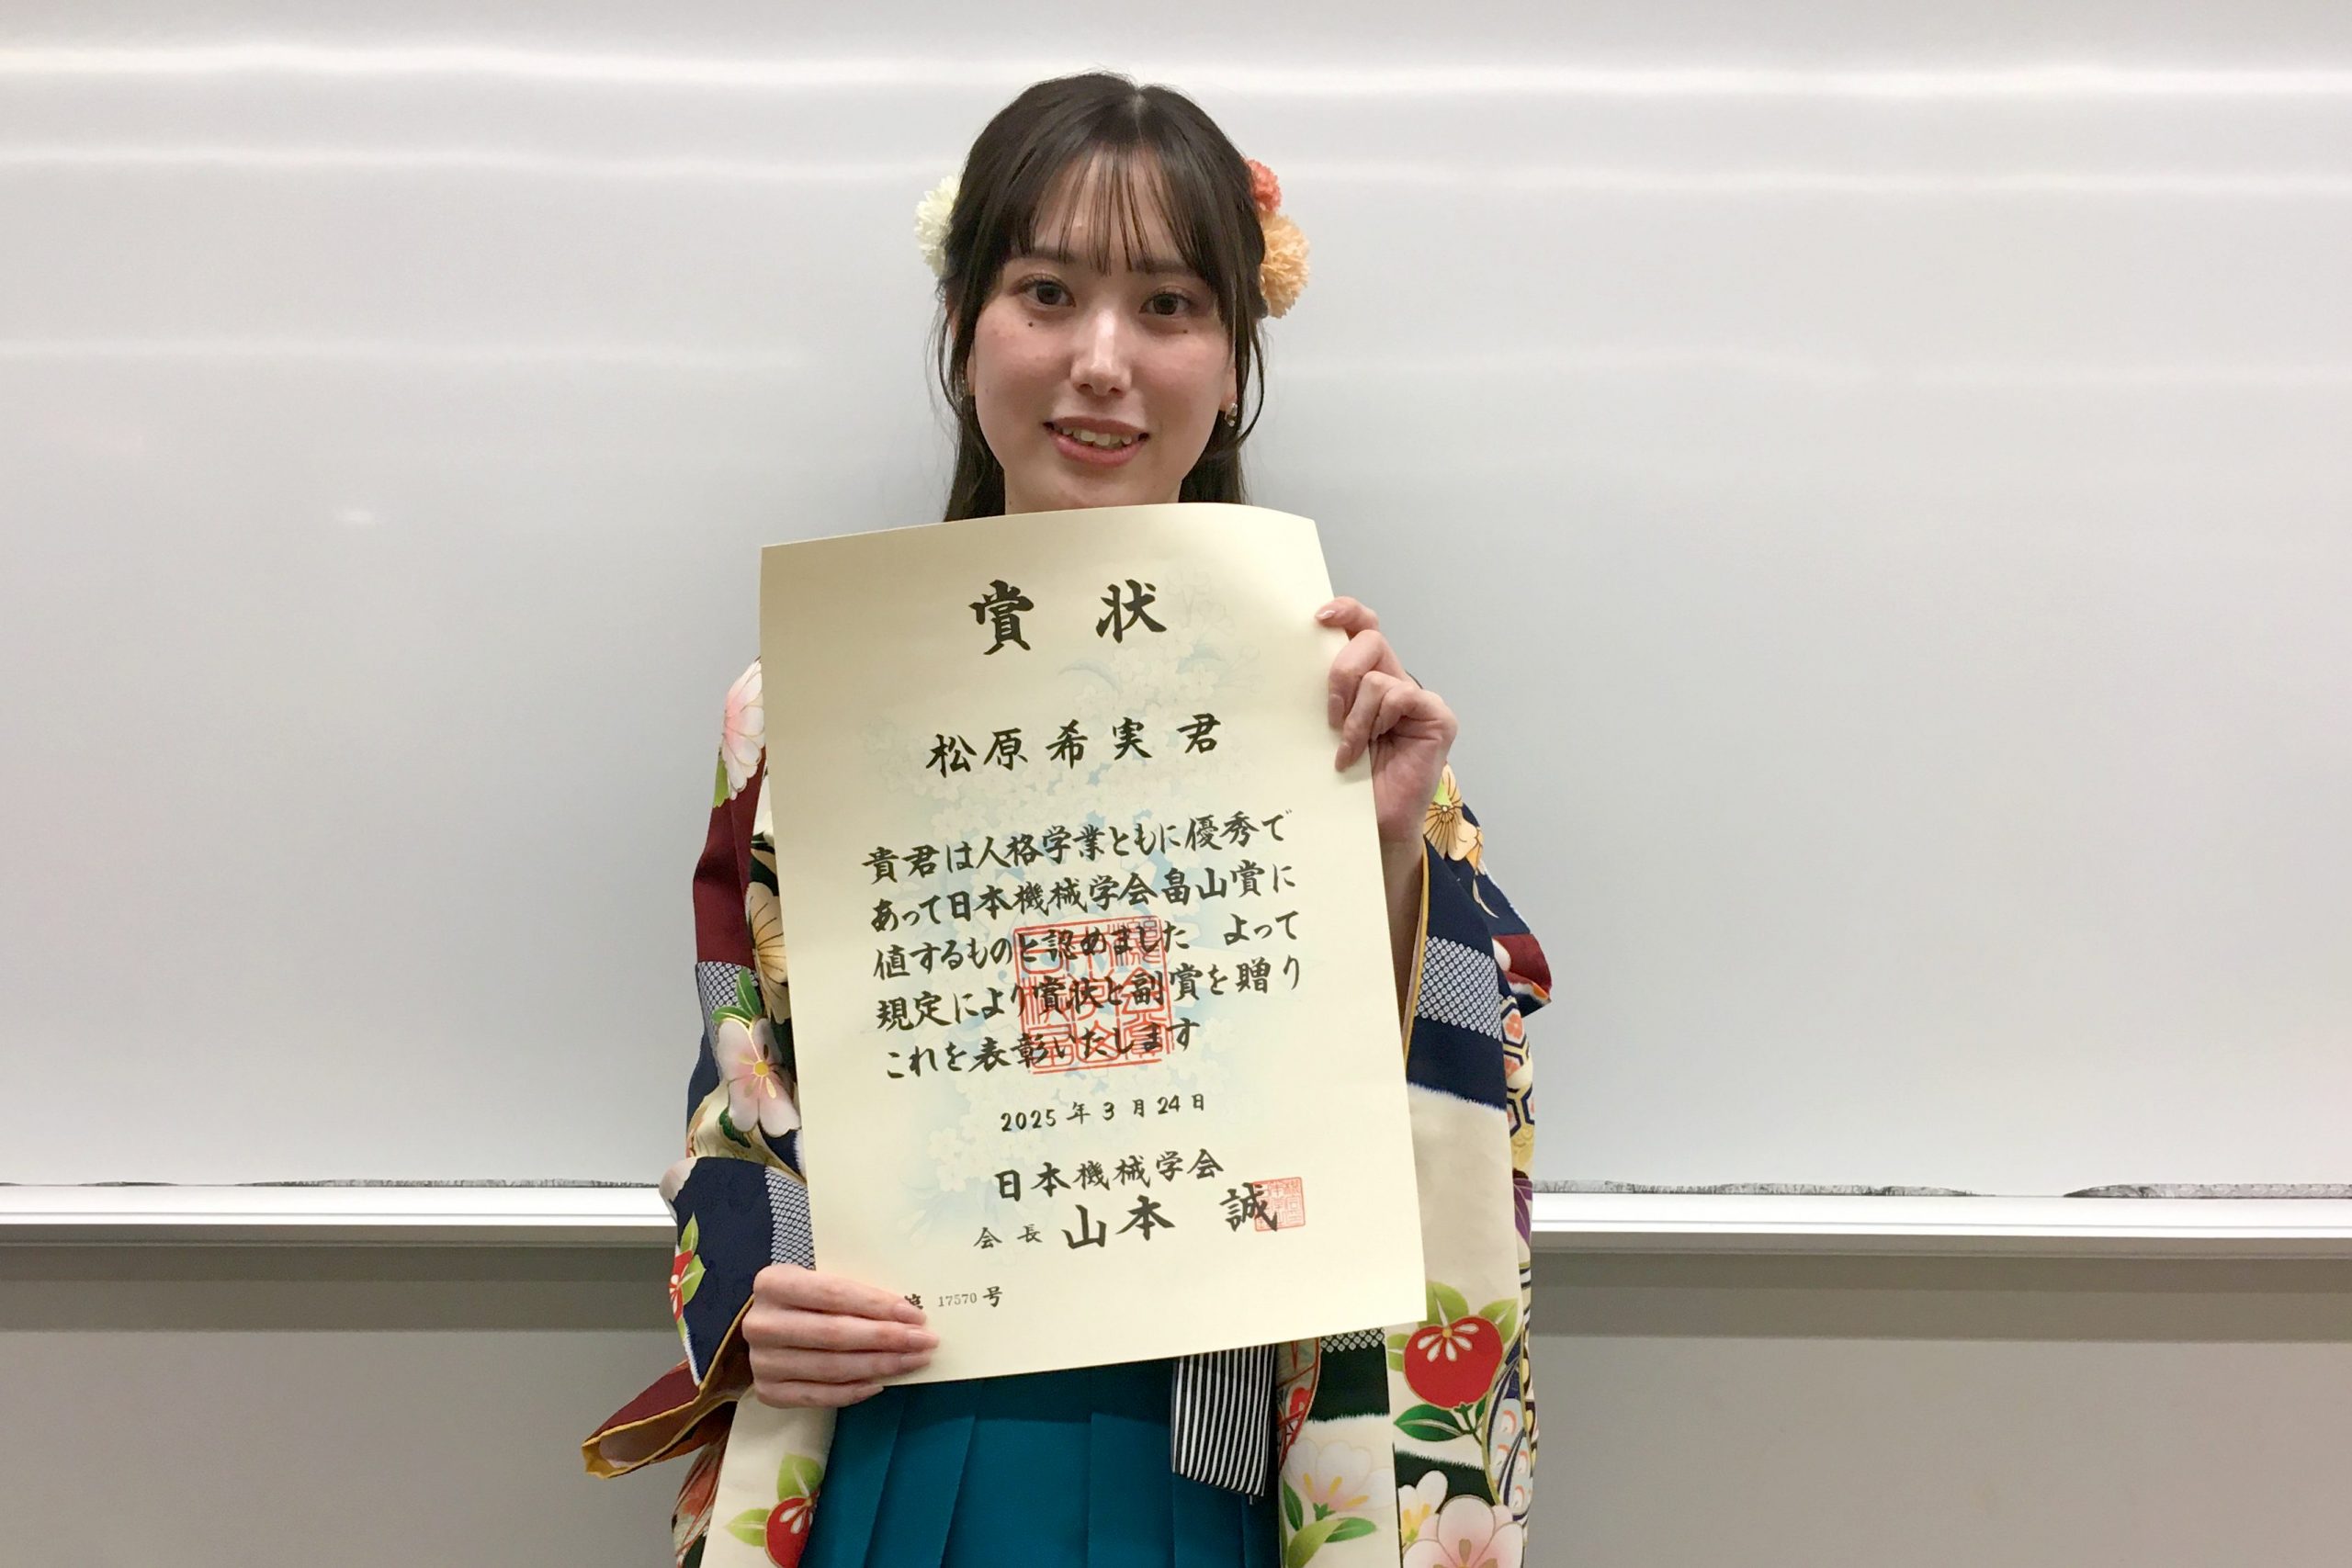 賞状
松原希実君
貴君は人格学業ともに優秀で
あって日本機械学会畠山賞に
値するものと認めました よって
規定により賞状と副賞を贈り
これを表彰いたします
2025年3月24日
日本機械学会
会長 山本 誠
17570号